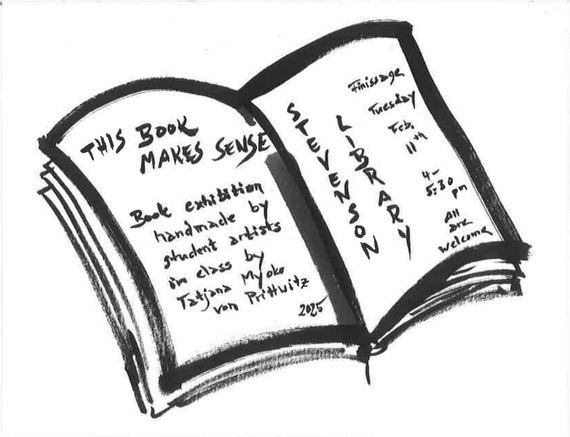 THIS BOOK
MAKES SENSE
Book exhibition
handmade by
student artists
in class by
Tatjana Myoko
von Prittwitz
2025
STEVENSON
LIBRARY
Finissage
Tuesday
Feb.
11th
4-
5:30
pm
All
are
welcome